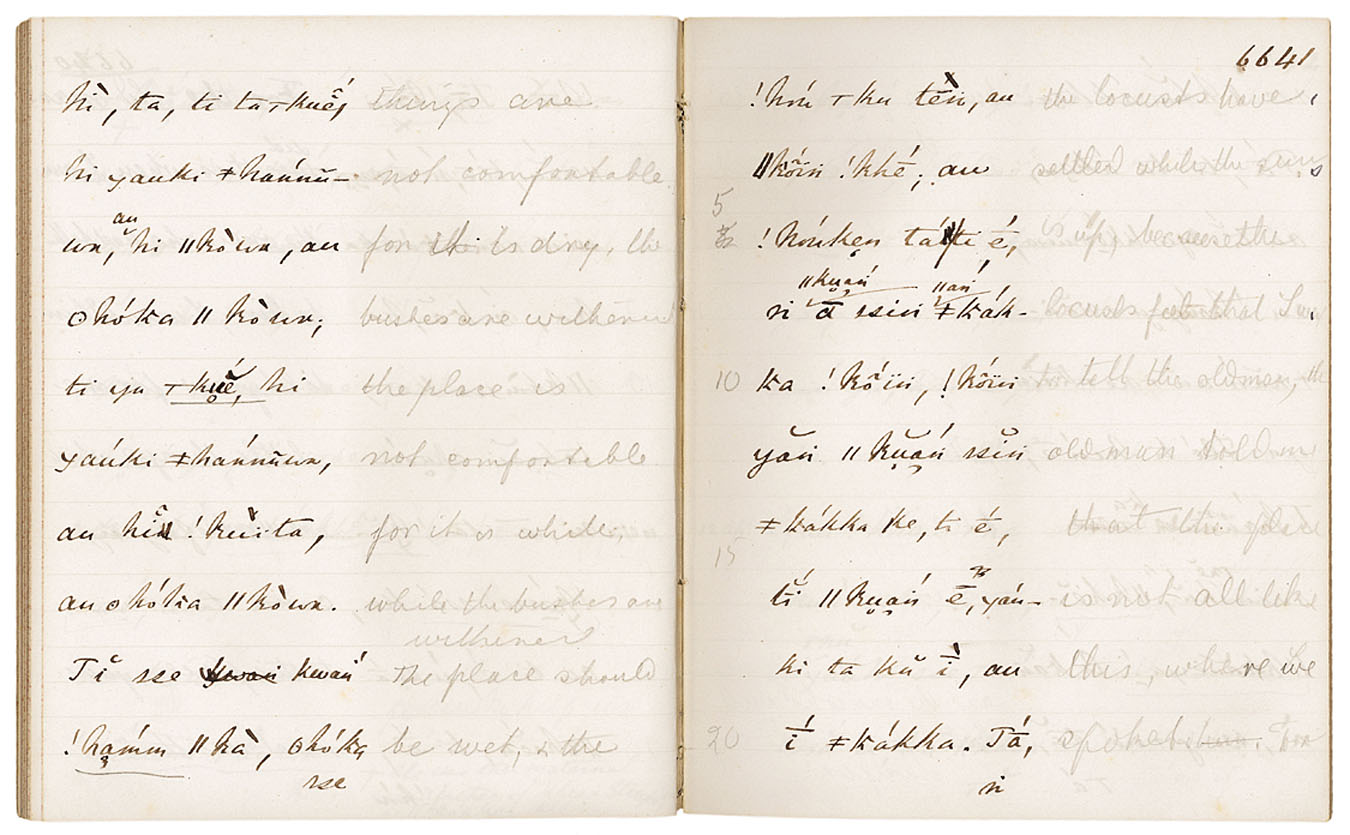 hì, ta, ti ta ⊤kuĕ́ things are
hi yauki ≠hánnŭ- not comfortable
wa, au hi ǁkòwa, au for it is dry, the
ʘhóka ǁkòwa; bushes are withered
ti ya ⊤kuĕ́, hi the place is
yaúki ≠hánnŭwa, not comfortable
au hĭ ! kùïta, for it is white,
au ʘhóka ǁkòwa. while the bushes are
withered
Tĭ sse kwań the place should
!kạḿm ǁkà, ʘhóka be wet, & the
sse
6641
!hóú ⊤ku tèn, au the locusts have
ǁkṏin !khé; au settled while the sun
5
!hóúken tátti é, is up, because the
ǁkuạń ǁań
n ā ssin ≠kák- locusts felt that I was
10 ka !kṏin, !kṏin to tell the old man, the
yăn ǁkŭạń ssĭn old man told me
≠kákka ke, ti é, that the place
15
tĭ ǁkuạń ē, yáu- is not all like
ki ta kŭ ì, au this, where we
20 í ≠kákka. Tá, spoke. For
n